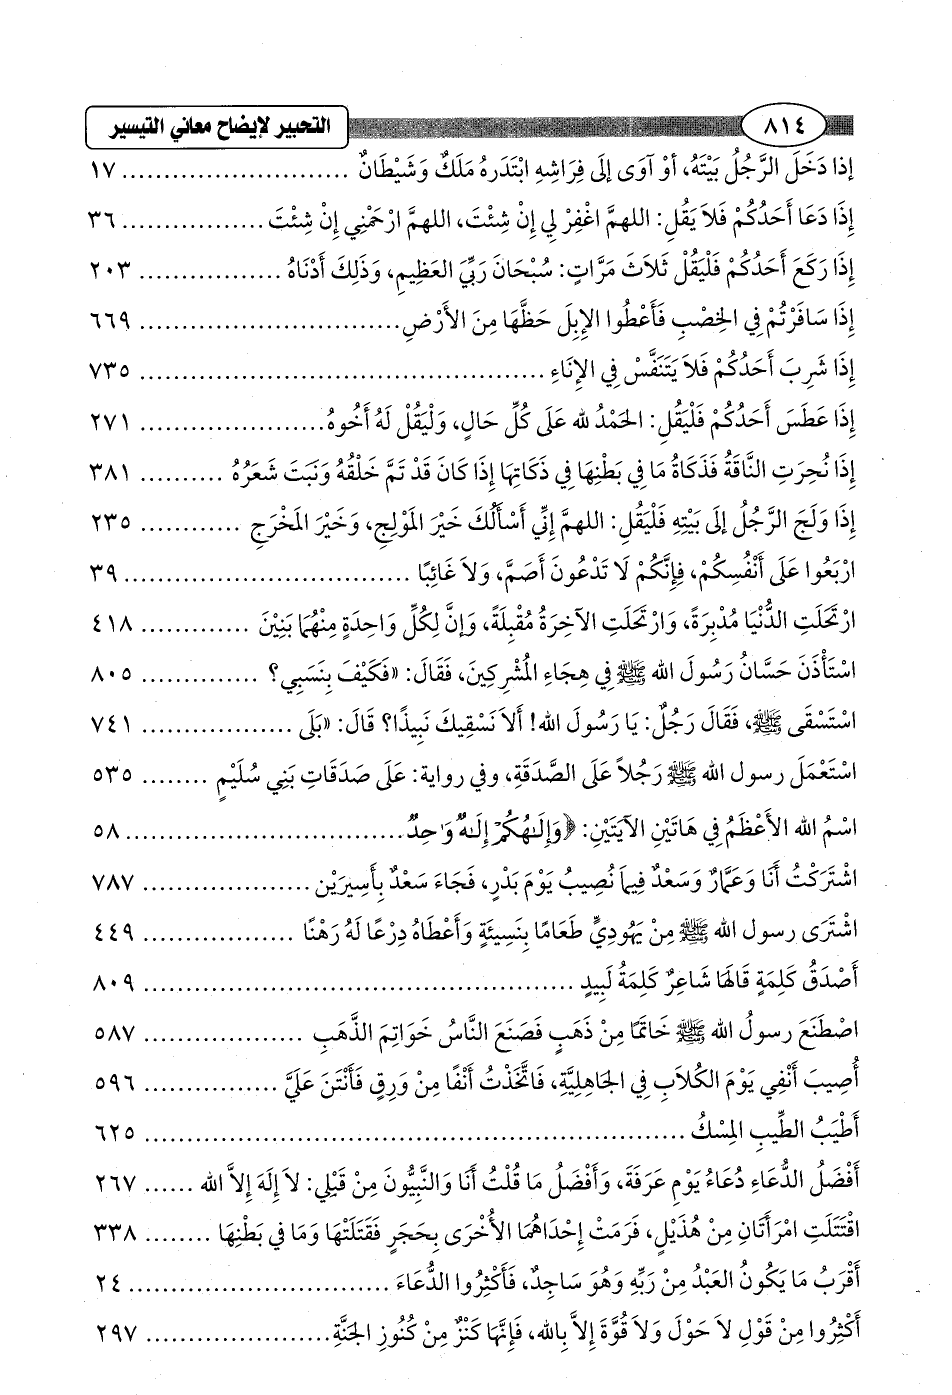 ٨١٤ التحبير لإيضاح معاني التيسير
إذا دَخَلَ الرَّجُلُ بَيْتَهُ، أوْ آوَى إلَى فِرَاشِهِ ابْتَدَرَهُ مَلَكٌ وَشَيْطَانٌ ............................ ١٧
إِذَا دَعَا أَحَدُكُمْ فَلاَ يَقُلِ: اللهمَّ اغْفِرْ لِي إِنْ شِئْتَ، اللهمَّ ارْحَمْنِي إِنْ شِئْتَ ................. ٣٦
إِذَا رَكَعَ أَحَدُكُمْ فَلْيَقُلْ ثَلاَثَ مَرَّاتٍ: سُبْحَانَ رَبِّيَ العَظِيمِ، وَذَلِكَ أَدْنَاهُ ................. ٢٠٣
إِذَا سَافَرْتُمْ فِي الخِصْبِ فَأَعْطُوا الإِبِلَ حَظَّهَا مِنَ الأَرْضِ................................ ٦٦٩
إِذَا شَرِبَ أَحَدُكُمْ فَلاَ يَتَنَفَّسْ فِي الإِنَاءِ ................................................. ٧٣٥
إِذَا عَطَسَ أَحَدُكُمْ فَلْيَقُلِ: الحَمْدُ لله عَلَى كُلِّ حَالٍ، وَلْيَقُلْ لَهُ أَخُوهُ....................... ٢٧١
إِذَا نُحِرَتِ النَّاقَةُ فَذَكَاةُ مَا فِي بَطْنِهَا فِي ذَكَاتِهَا إِذَا كَانَ قَدْ تَمَّ خَلْقُهُ وَنَبَتَ شَعَرُهُ .......... ٣٨١
إِذَا وَلَجَ الرَّجُلُ إِلَى بَيْتِهِ فَلْيَقُلِ: اللهمَّ إِنِّي أَسْأَلُكَ خَيْرَ المَوْلِجِ، وَخَيْرَ المَخْرَجِ ............ ٢٣٥
ارْبَعُوا عَلَى أَنْفُسِكُمْ، فِإِنَّكُمْ لَا تَدْعُونَ أَصَمَّ، وَلاَ غَائِبًا .................................. ٣٩
ارْتَحَلَتِ الدُّنْيَا مُدْبِرَةً، وَارْتَحَلَتِ الآخِرَةُ مُقْبِلَةً، وَإنَّ لِكُلِّ وَاحِدَةٍ مِنْهُمَا بَنِيْنَ ............. ٤١٨
اسْتَأْذَنَ حَسَّانُ رَسُولَ الله ﷺ فِي هِجَاءِ المُشْرِكِينَ، فَقَالَ: «فَكَيْفَ بِنَسَبِي؟ .............. ٨٠٥
اسْتَسْقَى ﷺ، فَقَالَ رَجُلٌ: يَا رَسُولَ الله! أَلاَ نَسْقِيكَ نَبِيذًا؟ قَالَ: «بَلَى .................. ٧٤١
اسْتَعْمَلَ رسول الله ﷺ رَجُلاً عَلَى الصَّدَقَةِ، وفي رواية: عَلَى صَدَقَاتِ بَنِي سُلَيْمٍ ........ ٥٣٥
اسْمُ الله الأَعْظَمُ فِي هَاتَيْنِ الآيَتَيْنِ: ﴿وَإِلَٰهُكُمْ إِلَٰهٌ وَاحِدٌ.................................. ٥٨
اشْتَرَكْتُ أَنَا وَعَمَّارٌ وَسَعْدٌ فِيمَا نُصِيبُ يَوْمَ بَدْرٍ، فَجَاءَ سَعْدٌ بِأَسِيرَيْن .................... ٧٨٧
اشْتَرَى رسول الله ﷺ مِنْ يَهُودِيٍّ طَعَامًا بِنَسِيئَةٍ وَأَعْطَاهُ دِرْعًا لَهُ رَهْنًا .................. ٤٤٩
أَصْدَقُ كَلِمَةٍ قَالَهَا شَاعِرٌ كَلِمَةُ لَبِيدٍ ..................................................... ٨٠٩
اصْطَنَعَ رسولُ الله ﷺ خَاتَمًا مِنْ ذَهَبٍ فَصَنَعَ النَّاسُ خَوَاتِمَ الذَّهَبِ ................... ٥٨٧
أُصِيبَ أَنْفِي يَوْمَ الكُلاَبِ فِي الجَاهِلِيَّةِ، فَاتَّخَذْتُ أَنْفًا مِنْ وَرِقٍ فَأَنْتَنَ عَلَيَّ ................ ٥٩٦
أَطْيَبُ الطِّيبِ المِسْكُ ................................................................. ٦٢٥
أَفْضَلُ الدُّعَاءِ دُعَاءُ يَوْمِ عَرَفَةَ، وَأَفْضَلُ مَا قُلْتُ أَنَا وَالنَّبِيُّونَ مِنْ قَبْلِي: لاَ إِلَهَ إِلاَّ الله ...... ٢٦٧
اقْتَتَلَتِ امْرَأَتَانِ مِنْ هُذَيْلٍ، فَرَمَتْ إِحْدَاهُمَا الأُخْرَى بِحَجَرٍ فَقَتَلَتْهَا وَمَا فِي بَطْنِهَا ........ ٣٣٨
أَقْرَبُ مَا يَكُونُ العَبْدُ مِنْ رَبِّهِ وَهُوَ سَاجِدٌ، فَأَكْثِرُوا الدُّعَاءَ ................................ ٢٤
أَكْثِرُوا مِنْ قَوْلِ لاَ حَوْلَ وَلاَ قُوَّةَ إِلاَّ بِالله، فَإِنَّهَا كَنْزٌ مِنْ كُنُوزِ الجَنَّةِ...................... ٢٩٧